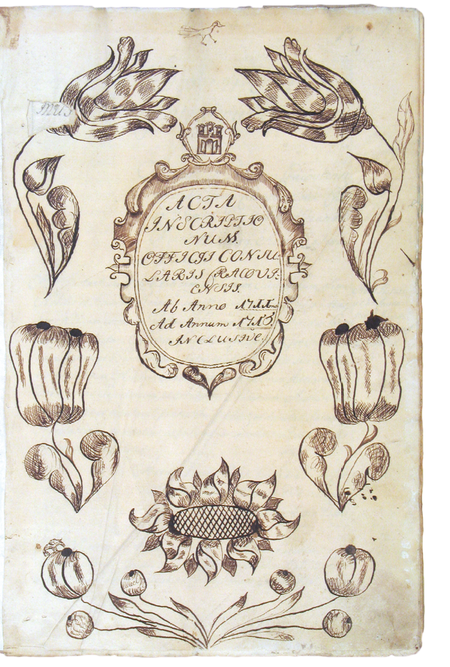 ACTA
INSCRIPTIO
NUM,
OFFICII CONSU-
LARIS CRACOVI-
ENSIS.
Ab Anno
Ad Annum
INCLUSIVE.